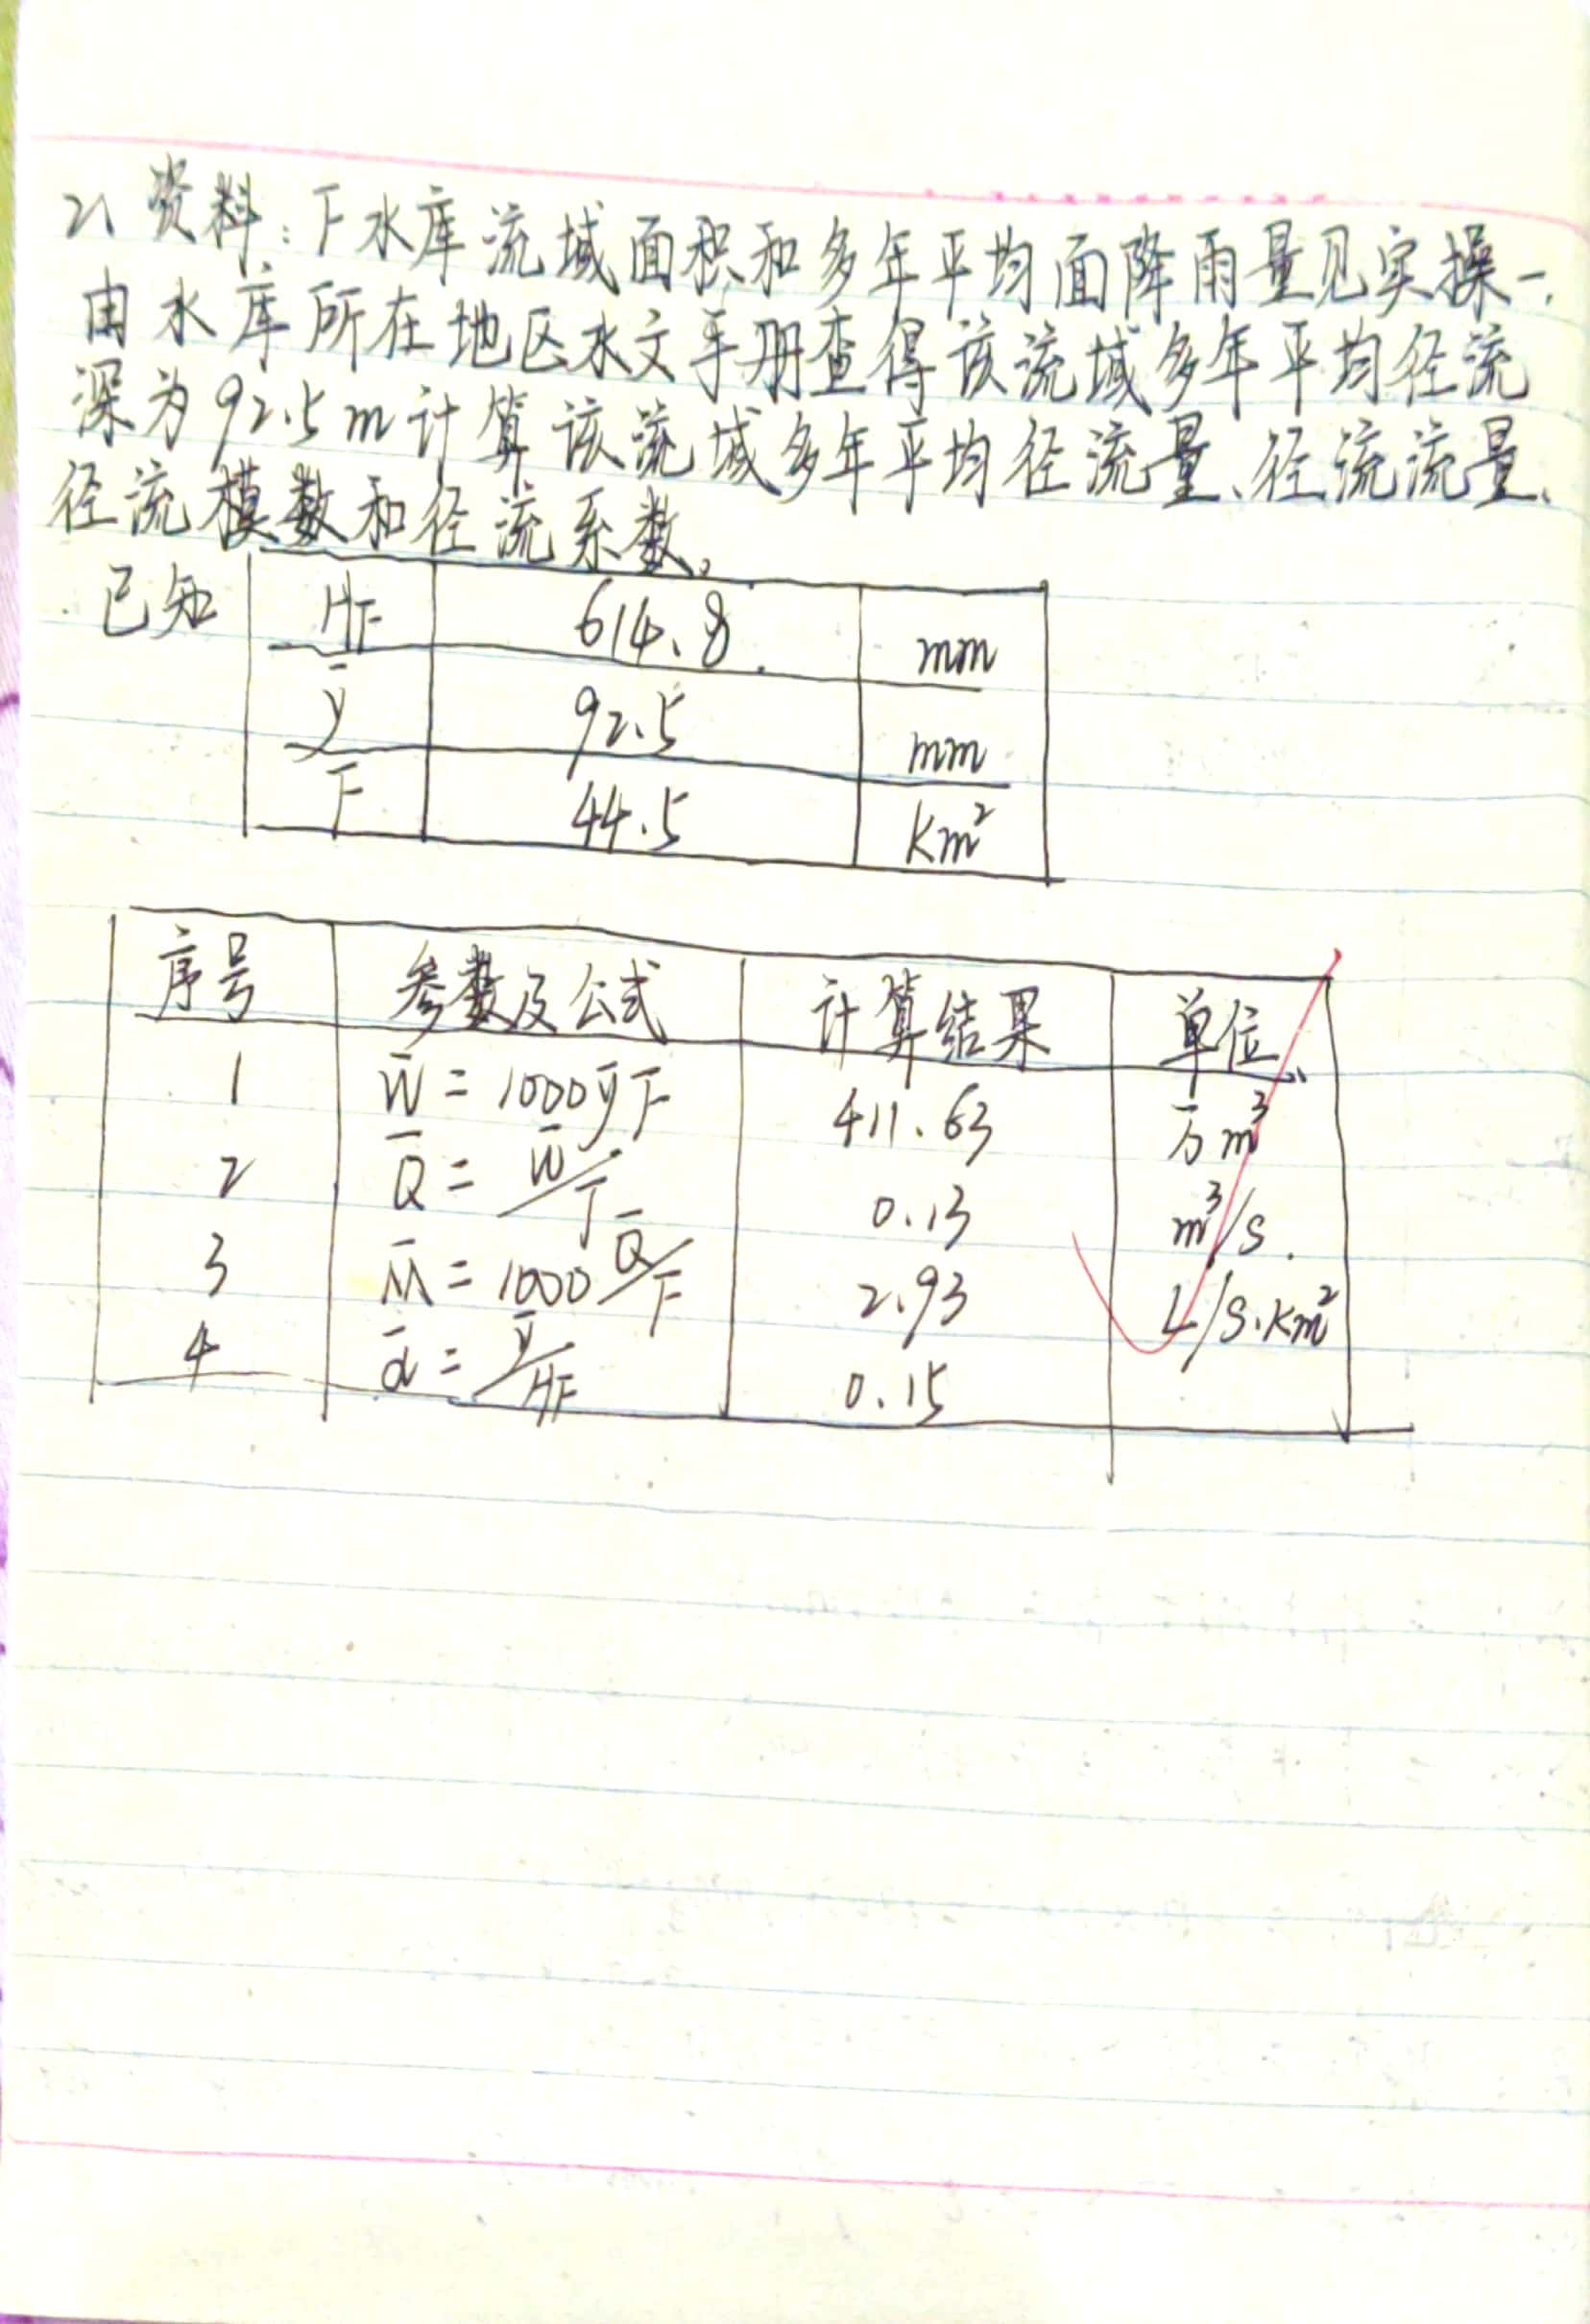 2、资料:F水库流域面积和多年平均面降雨量见实操一,
由水库所在地区水文手册查得该流域多年平均径流
深为92.5m计算该流域多年平均径流量、径流流量、
径流模数和径流系数。
已知 H̄F 614.8 mm
ȳ 92.5 mm
F 44.5 Km²
序号 参数及公式 计算结果 单位
1 W̄ = 1000ȳF 411.63 万m³
2 Q̄ = W̄/T 0.13 m³/s.
3 M̄ = 1000 Q̄/F 2.93 L/s.Km²
4 ᾱ = ȳ/H̄F 0.15